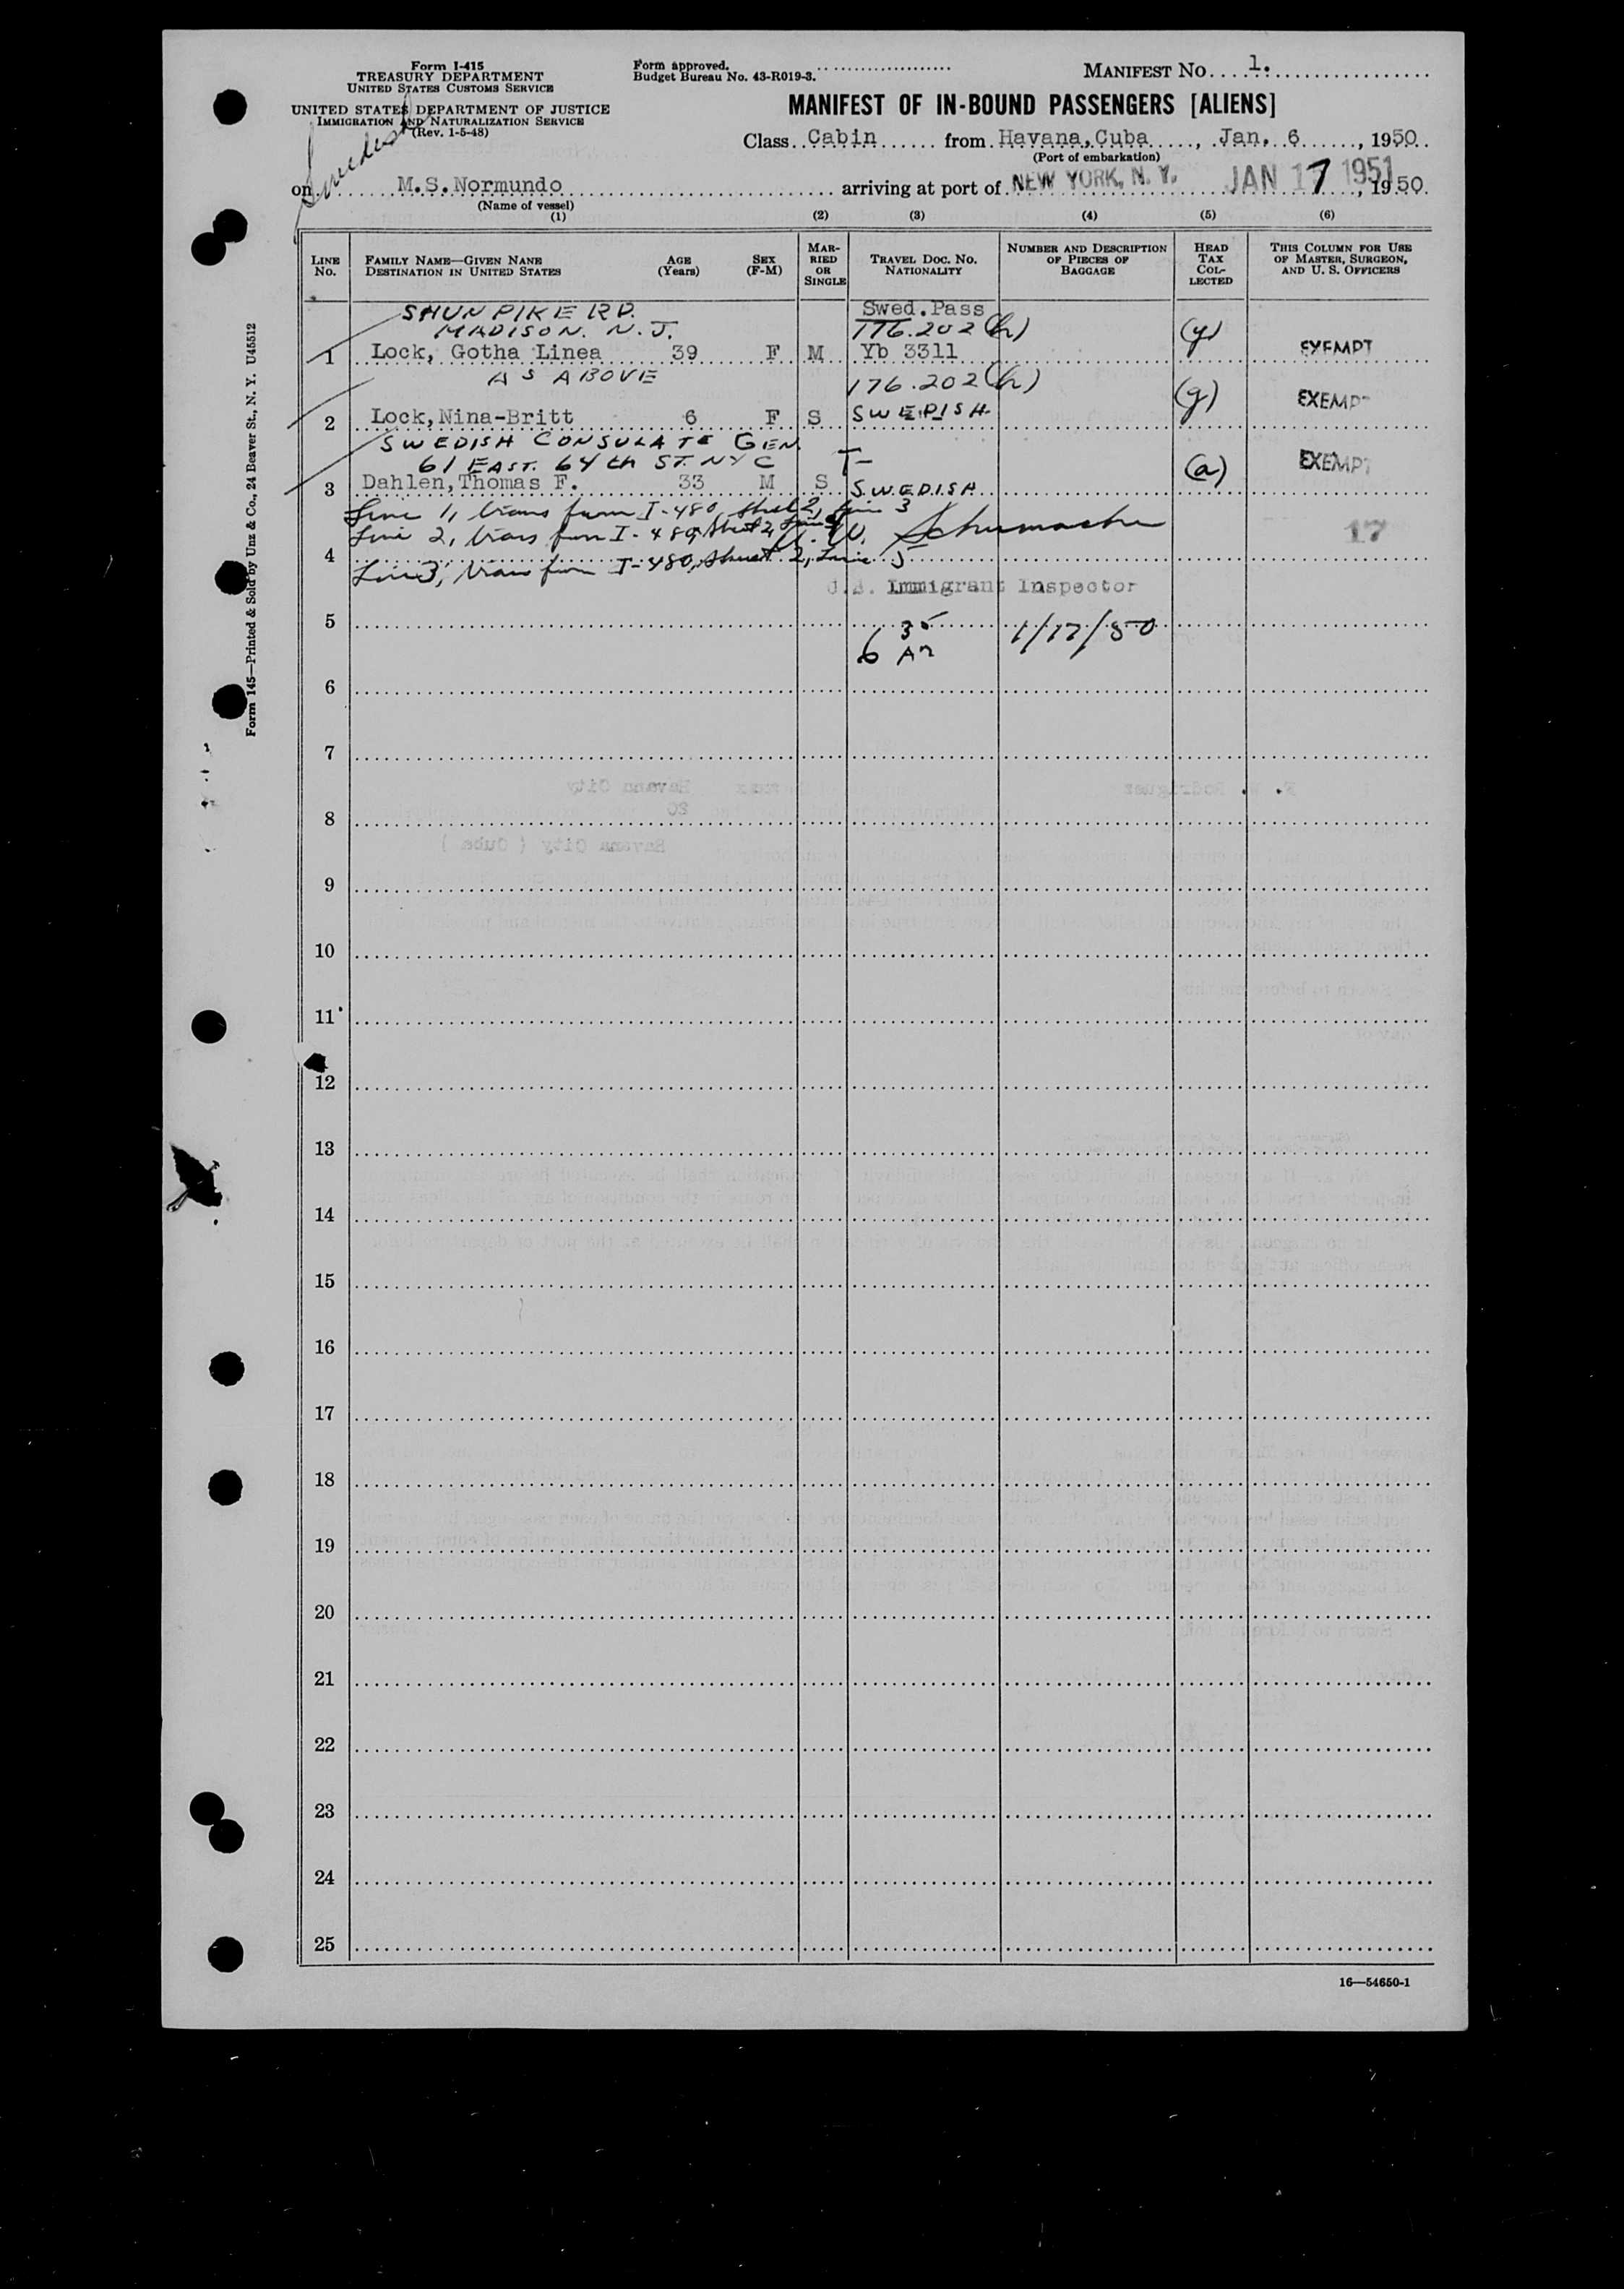 Form I-415
TREASURY DEPARTMENT
UNITED STATES CUSTOMS SERVICE
UNITED STATES DEPARTMENT OF JUSTICE
IMMIGRATION AND NATURALIZATION SERVICE
(Rev. 1-5-48)
Swedish
Form approved.
Budget Bureau No. 43-R019-3.
MANIFEST NO. 1.
MANIFEST OF IN-BOUND PASSENGERS [ALIENS]
Class Cabin from Havana, Cuba, Jan. 6, 1950
(Port of embarkation)
on M.S. Normundo arriving at port of NEW YORK, N. Y. JAN 17 1951, 1950
(Name of vessel)
(1) (2) (3) (4) (5) (6)
LINE NO. FAMILY NAME—GIVEN NANE DESTINATION IN UNITED STATES AGE (Years) SEX (F-M) MARRIED OR SINGLE TRAVEL DOC. NO. NATIONALITY NUMBER AND DESCRIPTION OF PIECES OF BAGGAGE HEAD TAX COLLECTED THIS COLUMN FOR USE OF MASTER, SURGEON, AND U. S. OFFICERS
SHUN PIKE RD. Swed. Pass
MADISON. N. J. 176.202(h) (g)
1 Lock, Gotha Linea 39 F M Yb 3311 EXEMPT
AS ABOVE 176.202(h) (g) EXEMPT
2 Lock, Nina-Britt 6 F S SWEDISH
SWEDISH CONSULATE GEN.
61 EAST. 64th ST. NYC T- (a) EXEMPT
3 Dahlen, Thomas F. 33 M S SWEDISH
Line 1, trans from I-480, sheet 2, line 3
Line 2, trans from I-480, sheet 2, line 4
W. Schumacher 17
4
Line 3, trans from I-480, sheet 2, line 5
U.S. Immigrant Inspector
5
6 35 AM 1/17/50
6
7
8
9
10
11
12
13
14
15
16
17
18
19
20
21
22
23
24
25
16—54650-1
Form 145—Printed & Sold by Unz & Co., 24 Beaver St., N. Y. U45512